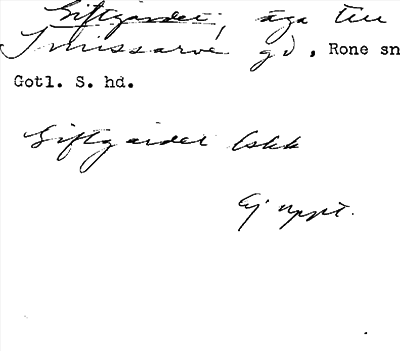 Giftgärdet, äga till
Smissarve gd, Rone sn
Gotl. S. hd.
Giftgärdet
Ej uppt.